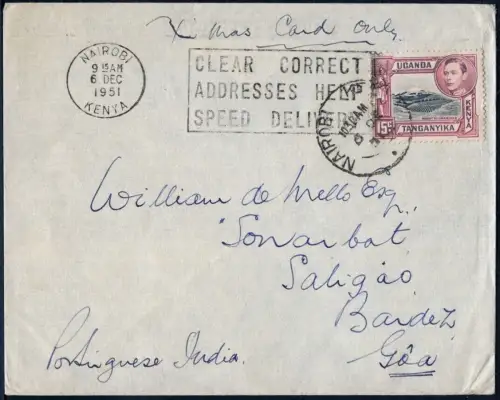 X'mas Card Only.
NAIROBI
9 15 AM
6 DEC
1951
KENYA
CLEAR CORRECT
ADDRESSES HELP
SPEED DELIVERY
UGANDA
KENYA
15c
TANGANYIKA
NAIROBI
10 30 AM
William de Mello Esq.,
"Sonarbat
Saligão
Bardez
Portuguese India.
Gôa